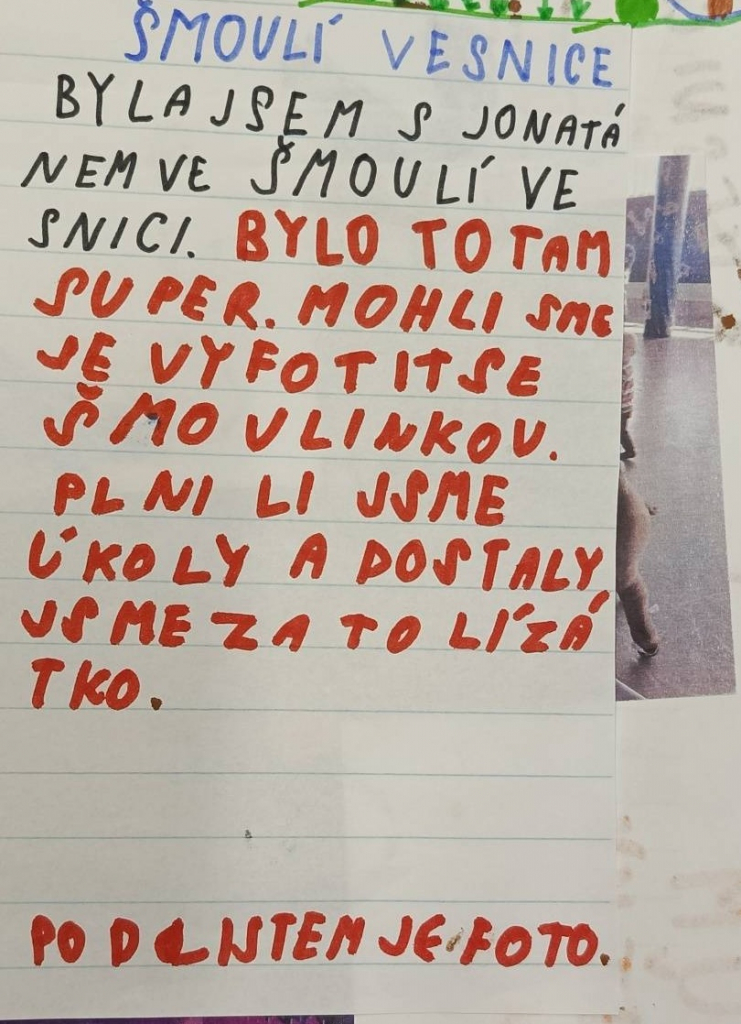 ŠMOULÍ VESNICE
BYLA JSEM S JONATÁ
NEM VE ŠMOULÍ VE
SNICI. BYLO TO TAM
SUPER. MOHLI SME
JE VYFOTIT SE
ŠMOULINKOU.
PLNI LI JSME
ÚKOLY A DOSTALY
JSME ZA TO LÍZÁ
TKO.
POD LISTEM JE FOTO.